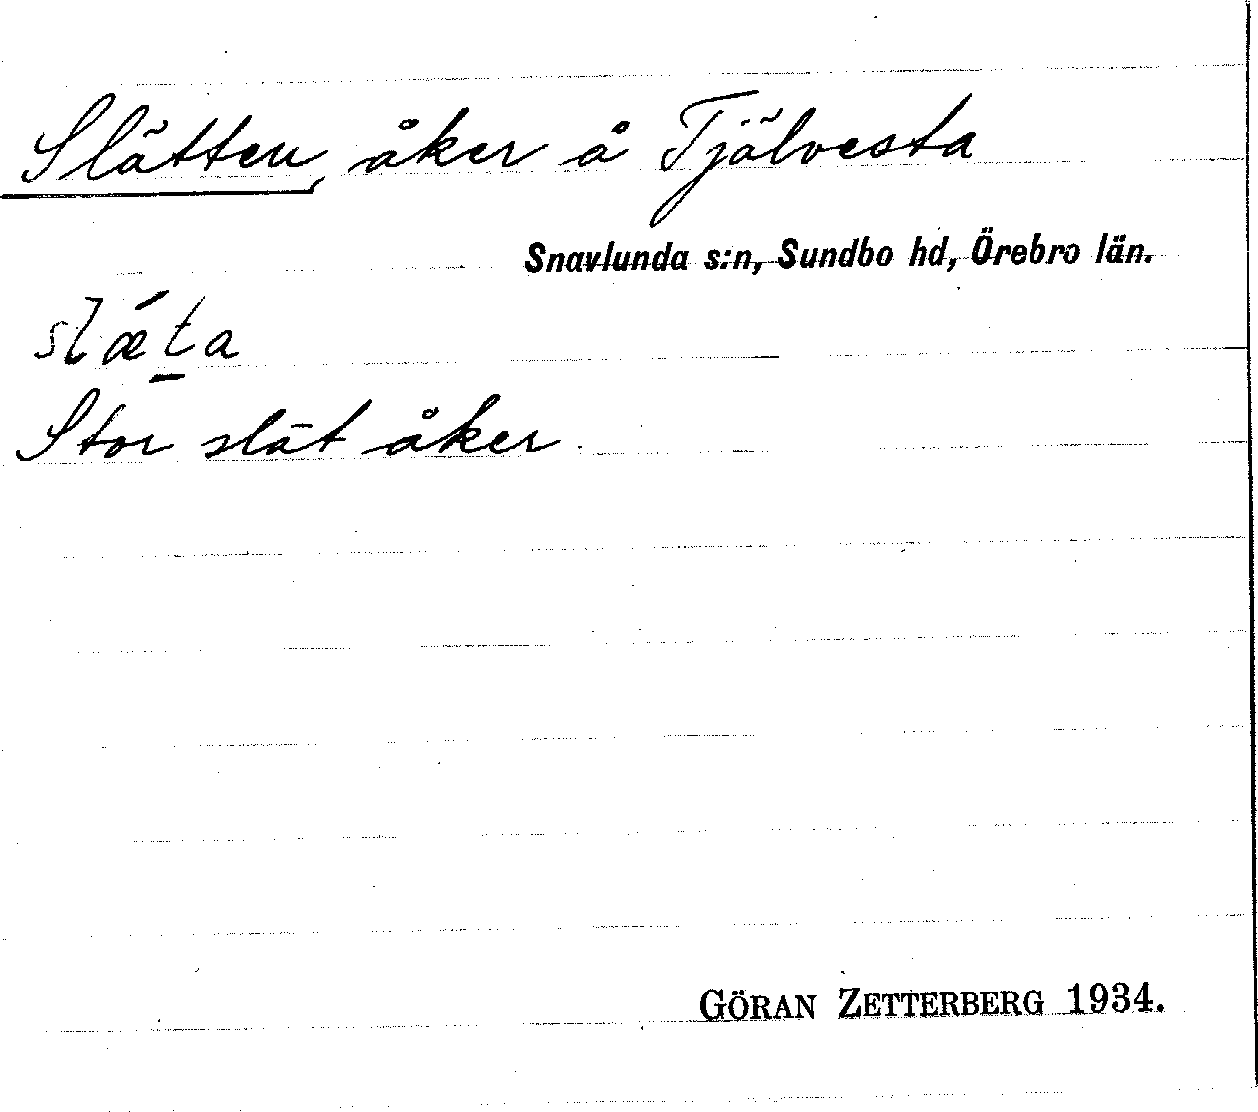 Slätten, åker å Tjälvesta
Snavlunda s:n, Sundbo hd, Örebro län.
slǽt̠a
Stor slät åker.
GÖRAN ZETTERBERG 1934.